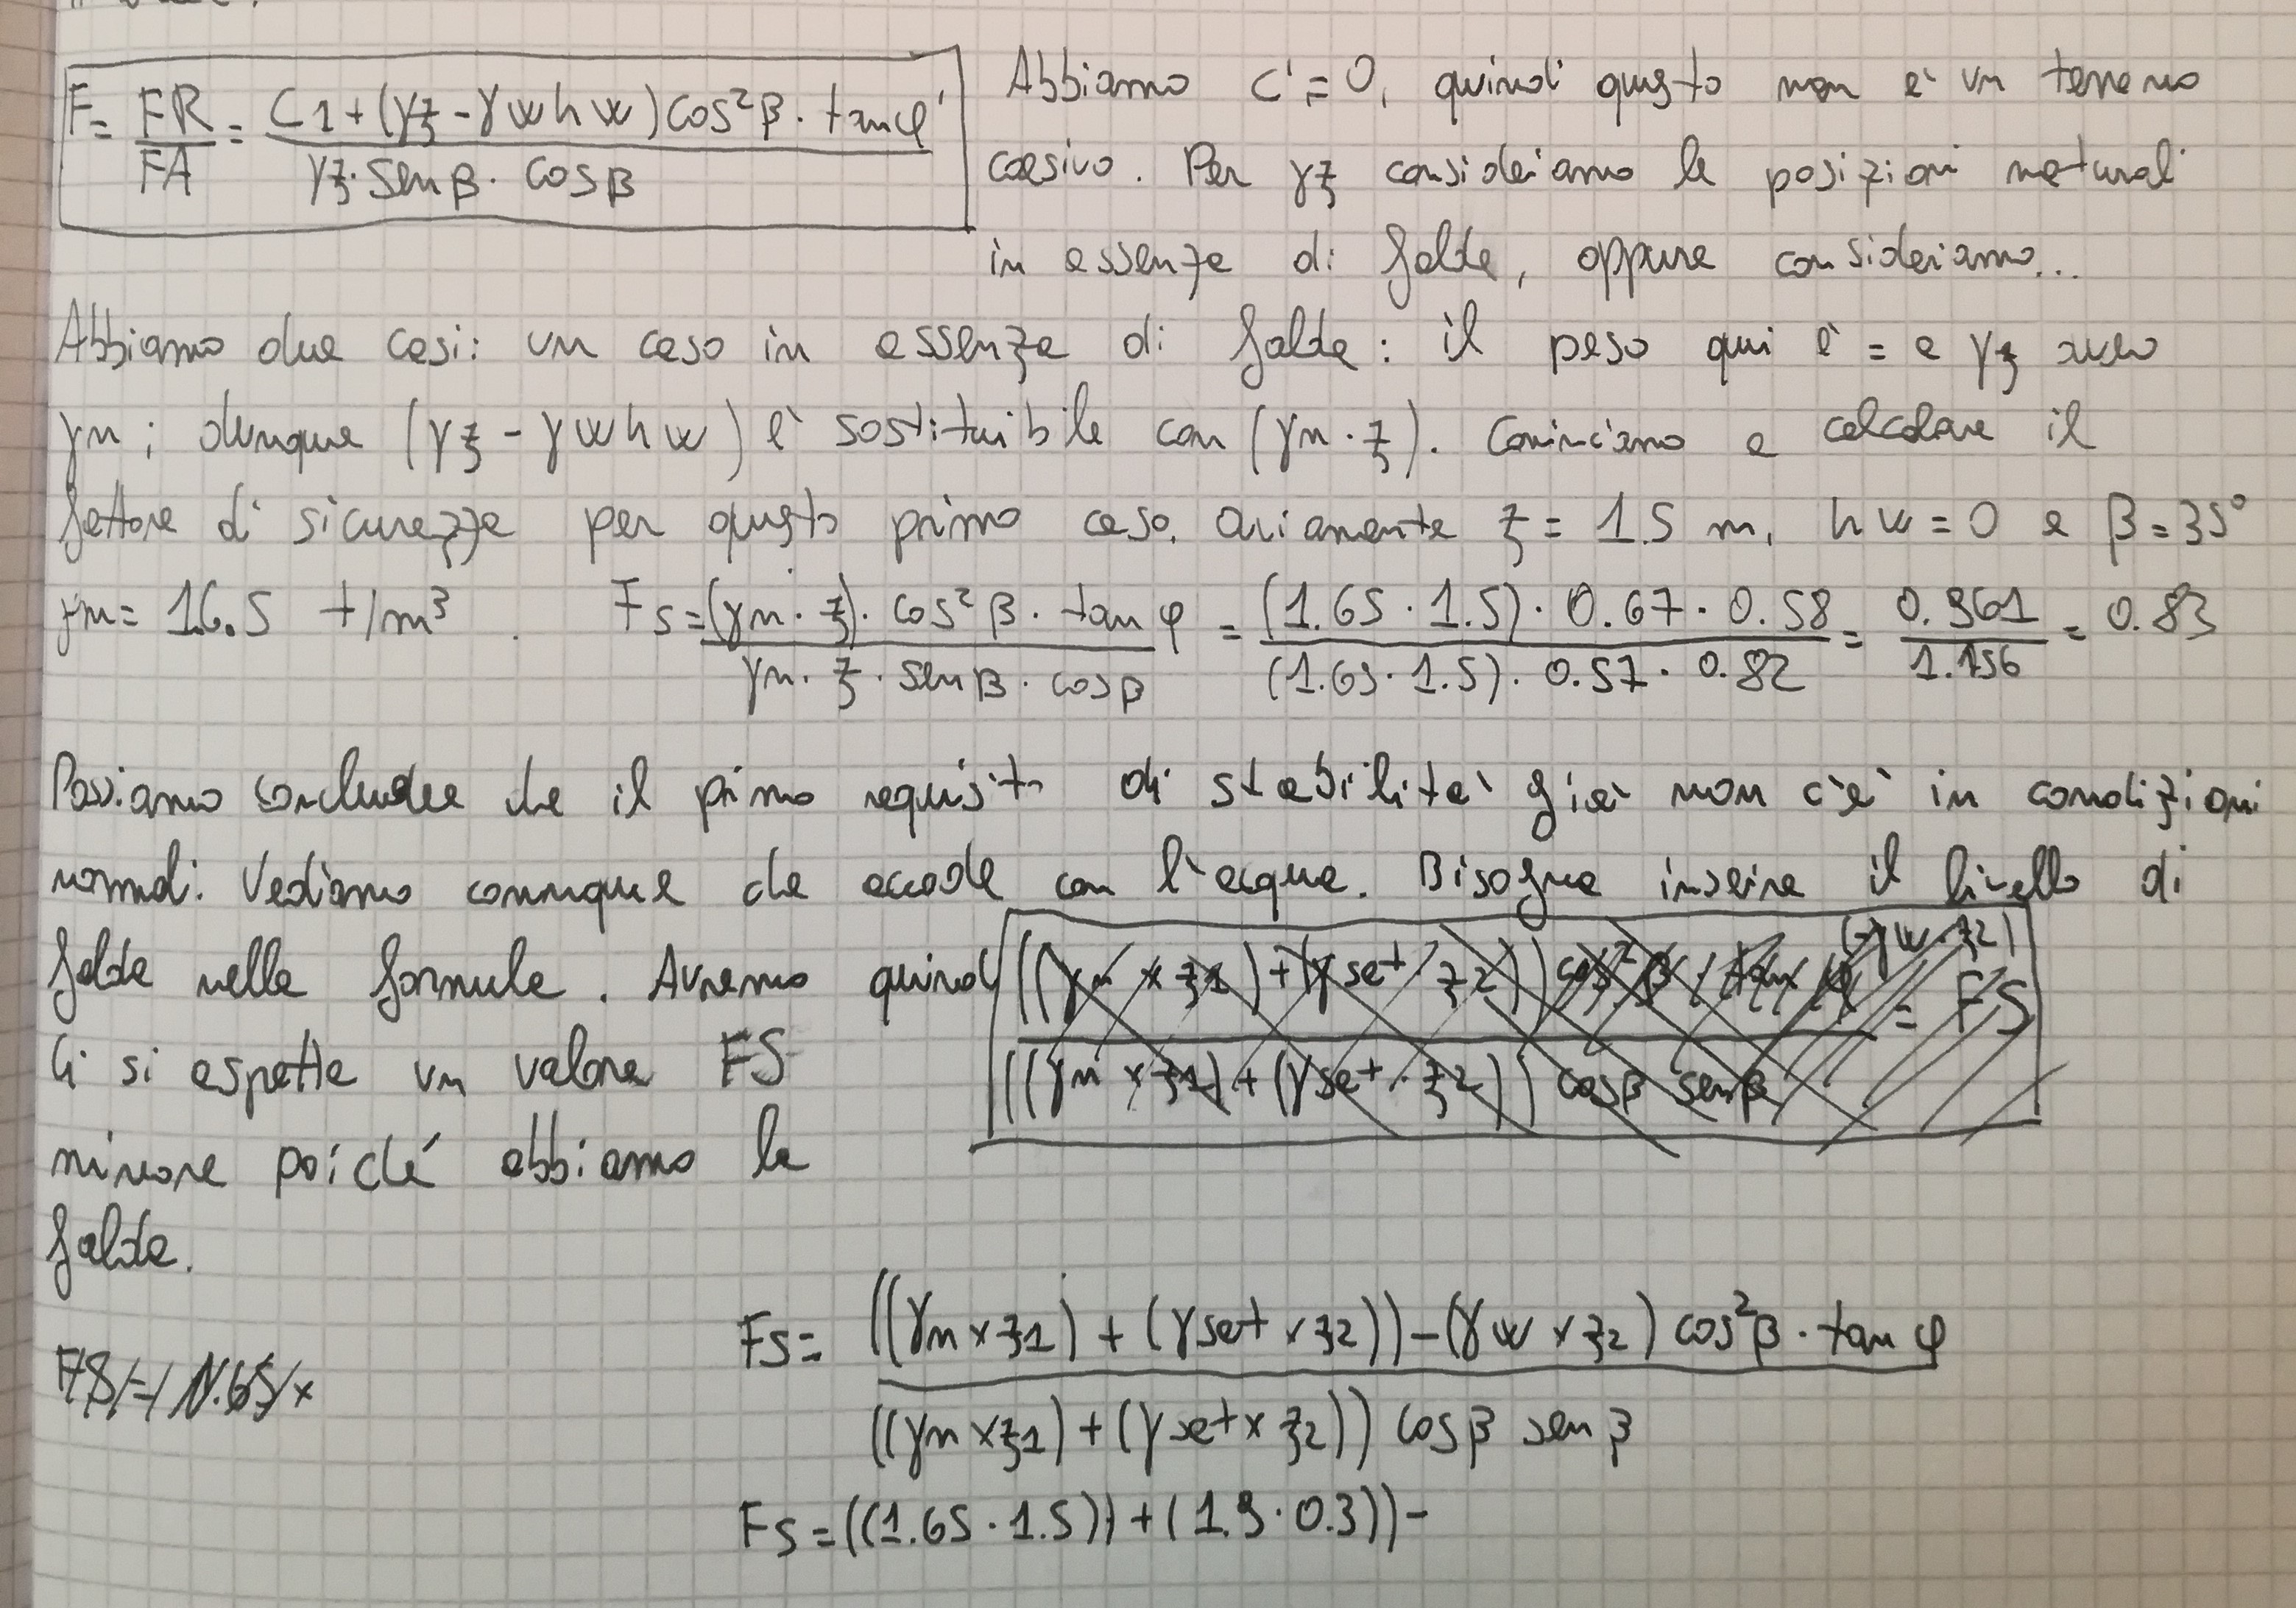 F = FR/FA = (C1 + (γz - γw hw) cos²β · tanφ') / (γz · senβ · cosβ)
Abbiamo c' = 0, quindi questo non è un terreno
coesivo. Per γz consideriamo le posizioni naturali
in assenza di falda, oppure consideriamo...
Abbiamo due casi: un caso in assenza di falda: il peso qui è = a γz
γn; dunque (γz - γw hw) è sostituibile con (γn · z). Cominciamo a calcolare il
fattore di sicurezza per questo primo caso. Ovviamente z = 1.5 m, hw = 0 e β = 35°
γn = 16.5 t/m³. Fs = ((γn · z) · cos²β · tanφ) / (γn · z · senβ · cosβ) = ((1.65 · 1.5) · 0.67 · 0.58) / ((1.65 · 1.5) · 0.57 · 0.82) = 0.961 / 1.156 = 0.83
Possiamo concludere che il primo requisito di stabilità già non c'è in condizioni
normali. Vediamo comunque che accade con l'acqua. Bisogna inserire il livello di
falda nella formula. Avremo quindi
((γn x z1) + (γsat · z2)) cos²β · tanφ (-γw · z2) / ((γn x z1) + (γsat · z2)) cosβ senβ = FS
Ci si aspetta un valore FS
minore poiché abbiamo la
falda.
Fs = ((γn x z1) + (γsat x z2)) - (γw x z2) cos²β · tanφ / ((γn x z1) + (γsat x z2)) cosβ senβ
FS = 1.65 x
Fs = ((1.65 · 1.5)) + (1.9 · 0.3)) -